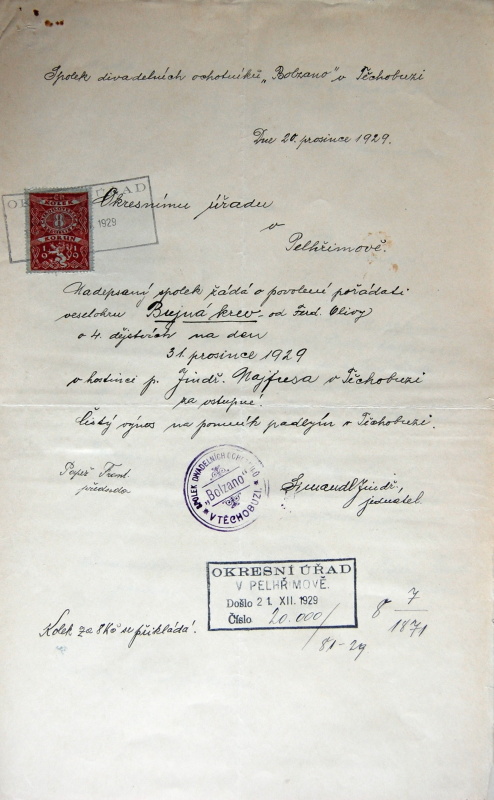 Spolek divadelních ochotníků „Bolzano" v Těchobuzi
Dne 20. prosince 1929.
OKRESNÍ ÚŘAD
1929
KOLEK
8
KORUN
1919
Okresnímu úřadu
v
Pelhřimově.
Nadepsaný spolek žádá o povolení pořádati
veselohru Bujná krev od Ferd. Olivy
o 4. dějstvích na den
31. prosince 1929
v hostinci p. Jindř. Najfusa v Těchobuzi
za vstupné.
Čistý výnos na pomník padlým v Těchobuzi.
SPOLEK DIVADELNÍCH OCHOTNÍKŮ
„Bolzano"
V TĚCHOBUZI
Frant.
předseda
Jindř.,
jednatel
OKRESNÍ ÚŘAD
V PELHŘIMOVĚ.
Došlo 21 XII. 1929
Číslo 20.000/
81-29
8 7/1871
Kolek za 8 Kč se přikládá.